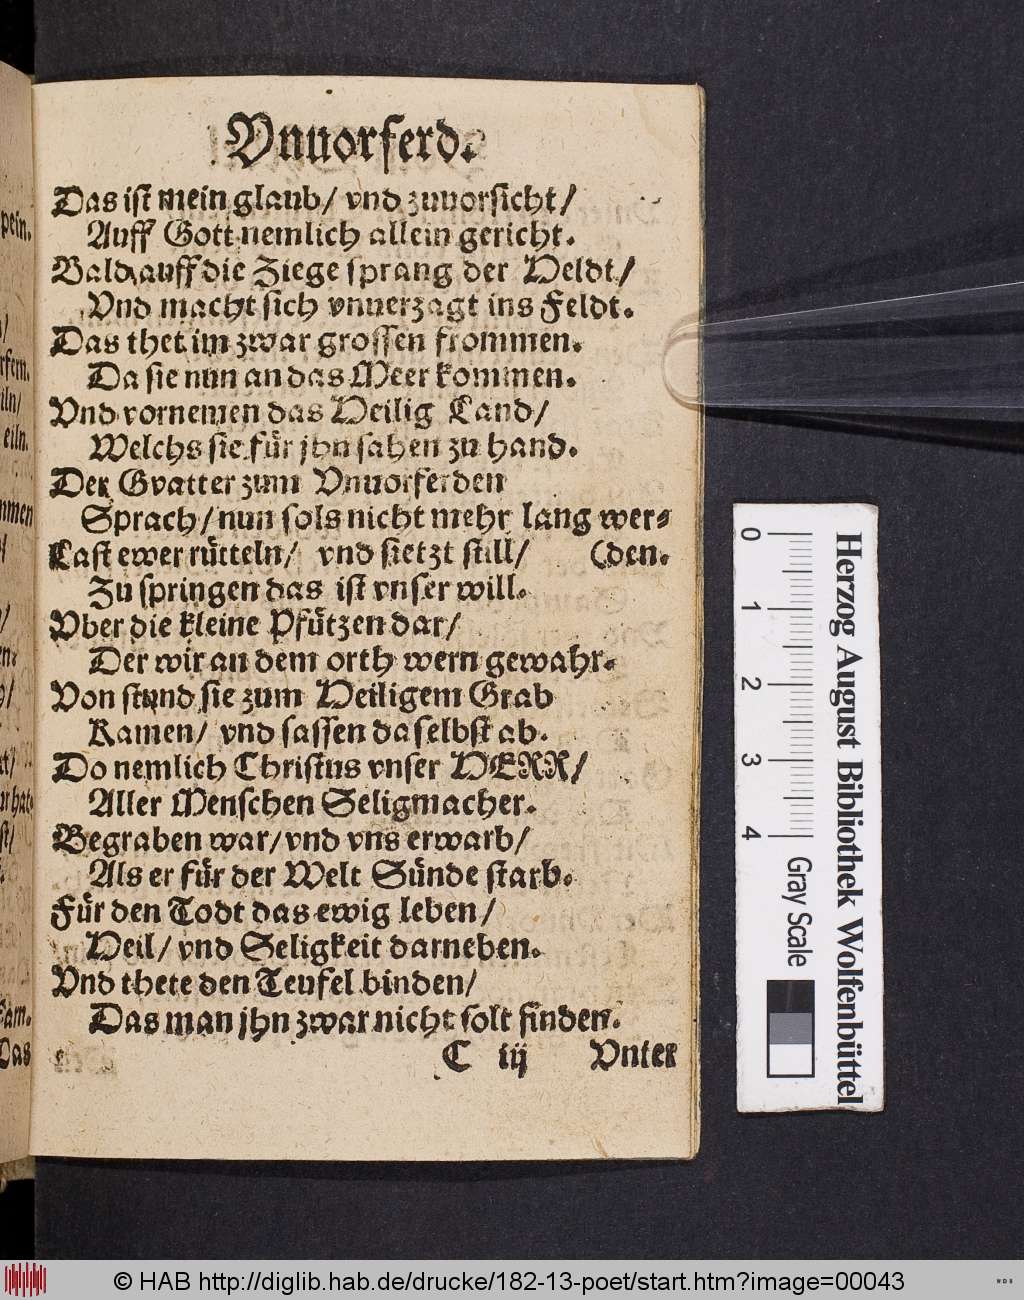 Vnuorferd.
Das ist mein glaub/ vnd zuuorsicht/
Auff Gott nemlich allein gericht.
Bald auff die Ziege sprang der Heldt/
Vnd macht sich vnuerzagt ins Feldt.
Das thet im zwar grossen frommen.
Da sie nun an das Meer kommen.
Vnd vornemen das Heilig Land/
Welchs sie für jhn sahen zu hand.
Der Gvatter zum Vnuorferden
Sprach/ nun sols nicht mehr lang wer⸗
Last ewer rütteln/ vnd sietzt still/ (den.
Zu springen das ist vnser will.
Vber die kleine Pfützen dar/
Der wir an dem orth wern gewahr.
Von stund sie zum Heiligem Grab
Kamen/ vnd sassen daselbst ab.
Do nemlich Christus vnser HERR/
Aller Menschen Seligmacher.
Begraben war/ vnd vns erwarb/
Als er für der Welt Sünde starb.
Für den Todt das ewig leben/
Heil/ vnd Seligkeit darneben.
Vnd thete den Teufel binden/
Das man jhn zwar nicht solt finden.
C iij Vnter
pein.
rfern.
eiln.
mmen
Das
0 1 2 3 4
Herzog August Bibliothek Wolfenbüttel
Gray Scale
© HAB http://diglib.hab.de/drucke/182-13-poet/start.htm?image=00043